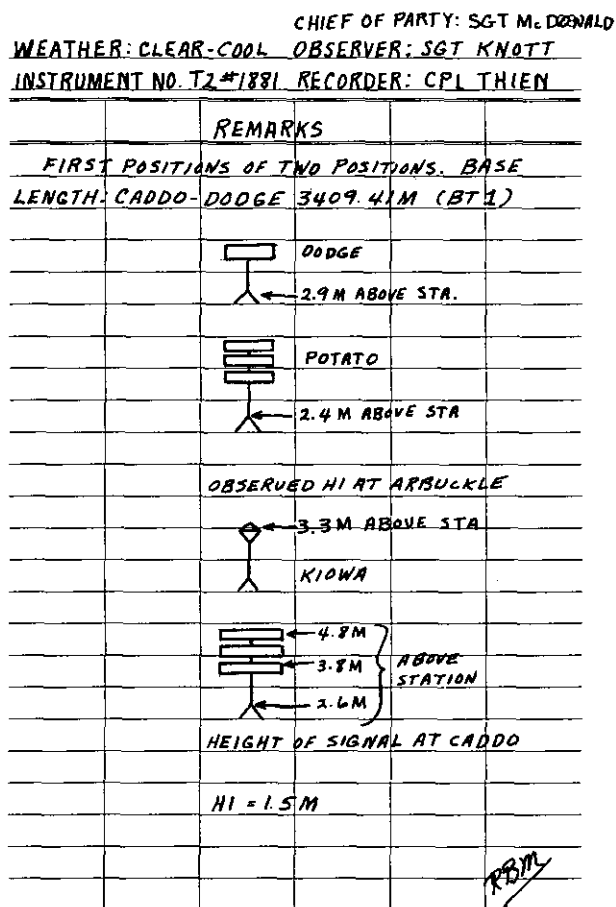 CHIEF OF PARTY: SGT McDONALD
WEATHER: CLEAR-COOL OBSERVER: SGT KNOTT
INSTRUMENT NO. T2#1881 RECORDER: CPL THIEN
REMARKS
FIRST POSITIONS OF TWO POSITIONS. BASE
LENGTH: CADDO-DODGE 3409.41M (BT1)
DODGE
2.9M ABOVE STA.
POTATO
2.4 M ABOVE STA
OBSERVED HI AT ARBUCKLE
3.3M ABOVE STA
KIOWA
4.8M
3.8M
ABOVE
STATION
2.6M
HEIGHT OF SIGNAL AT CADDO
HI = 1.5M
RBM